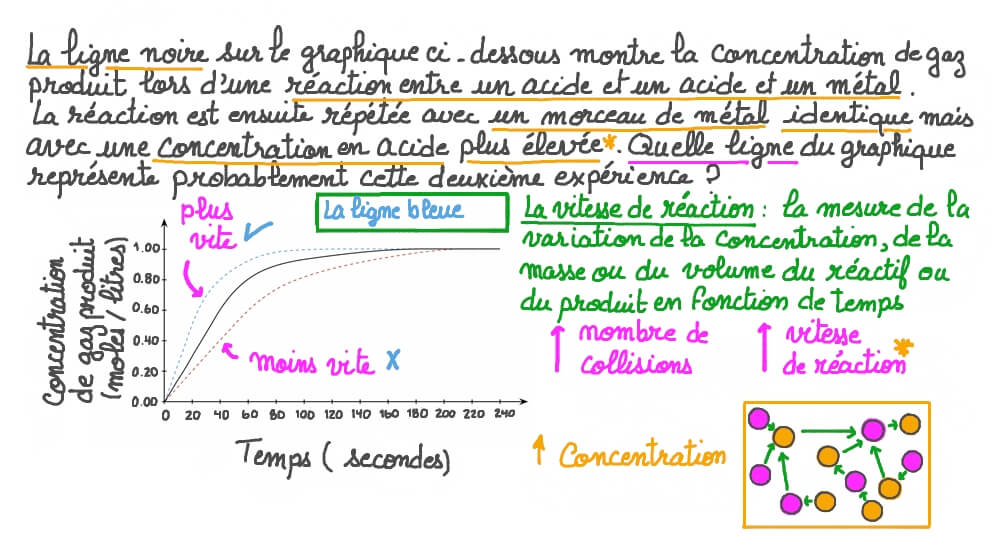 La ligne noire sur le graphique ci-dessous montre la concentration de gaz
produit lors d'une réaction entre un acide et un acide et un métal.
La réaction est ensuite répétée avec un morceau de métal identique mais
avec une concentration en acide plus élevée*. Quelle ligne du graphique
représente probablement cette deuxième expérience ?
plus
vite ✓
La ligne bleue
La vitesse de réaction : la mesure de la
variation de la concentration, de la
masse ou du volume du réactif ou
du produit en fonction de temps
Concentration
de gaz produit
(moles / litres)
1.00
0.80
0.60
0.40
0.20
0.00
moins vite X
0 20 40 60 80 100 120 140 160 180 200 220 240
Temps (secondes)
↑ nombre de
collisions
↑ vitesse
de réaction*
↑ Concentration